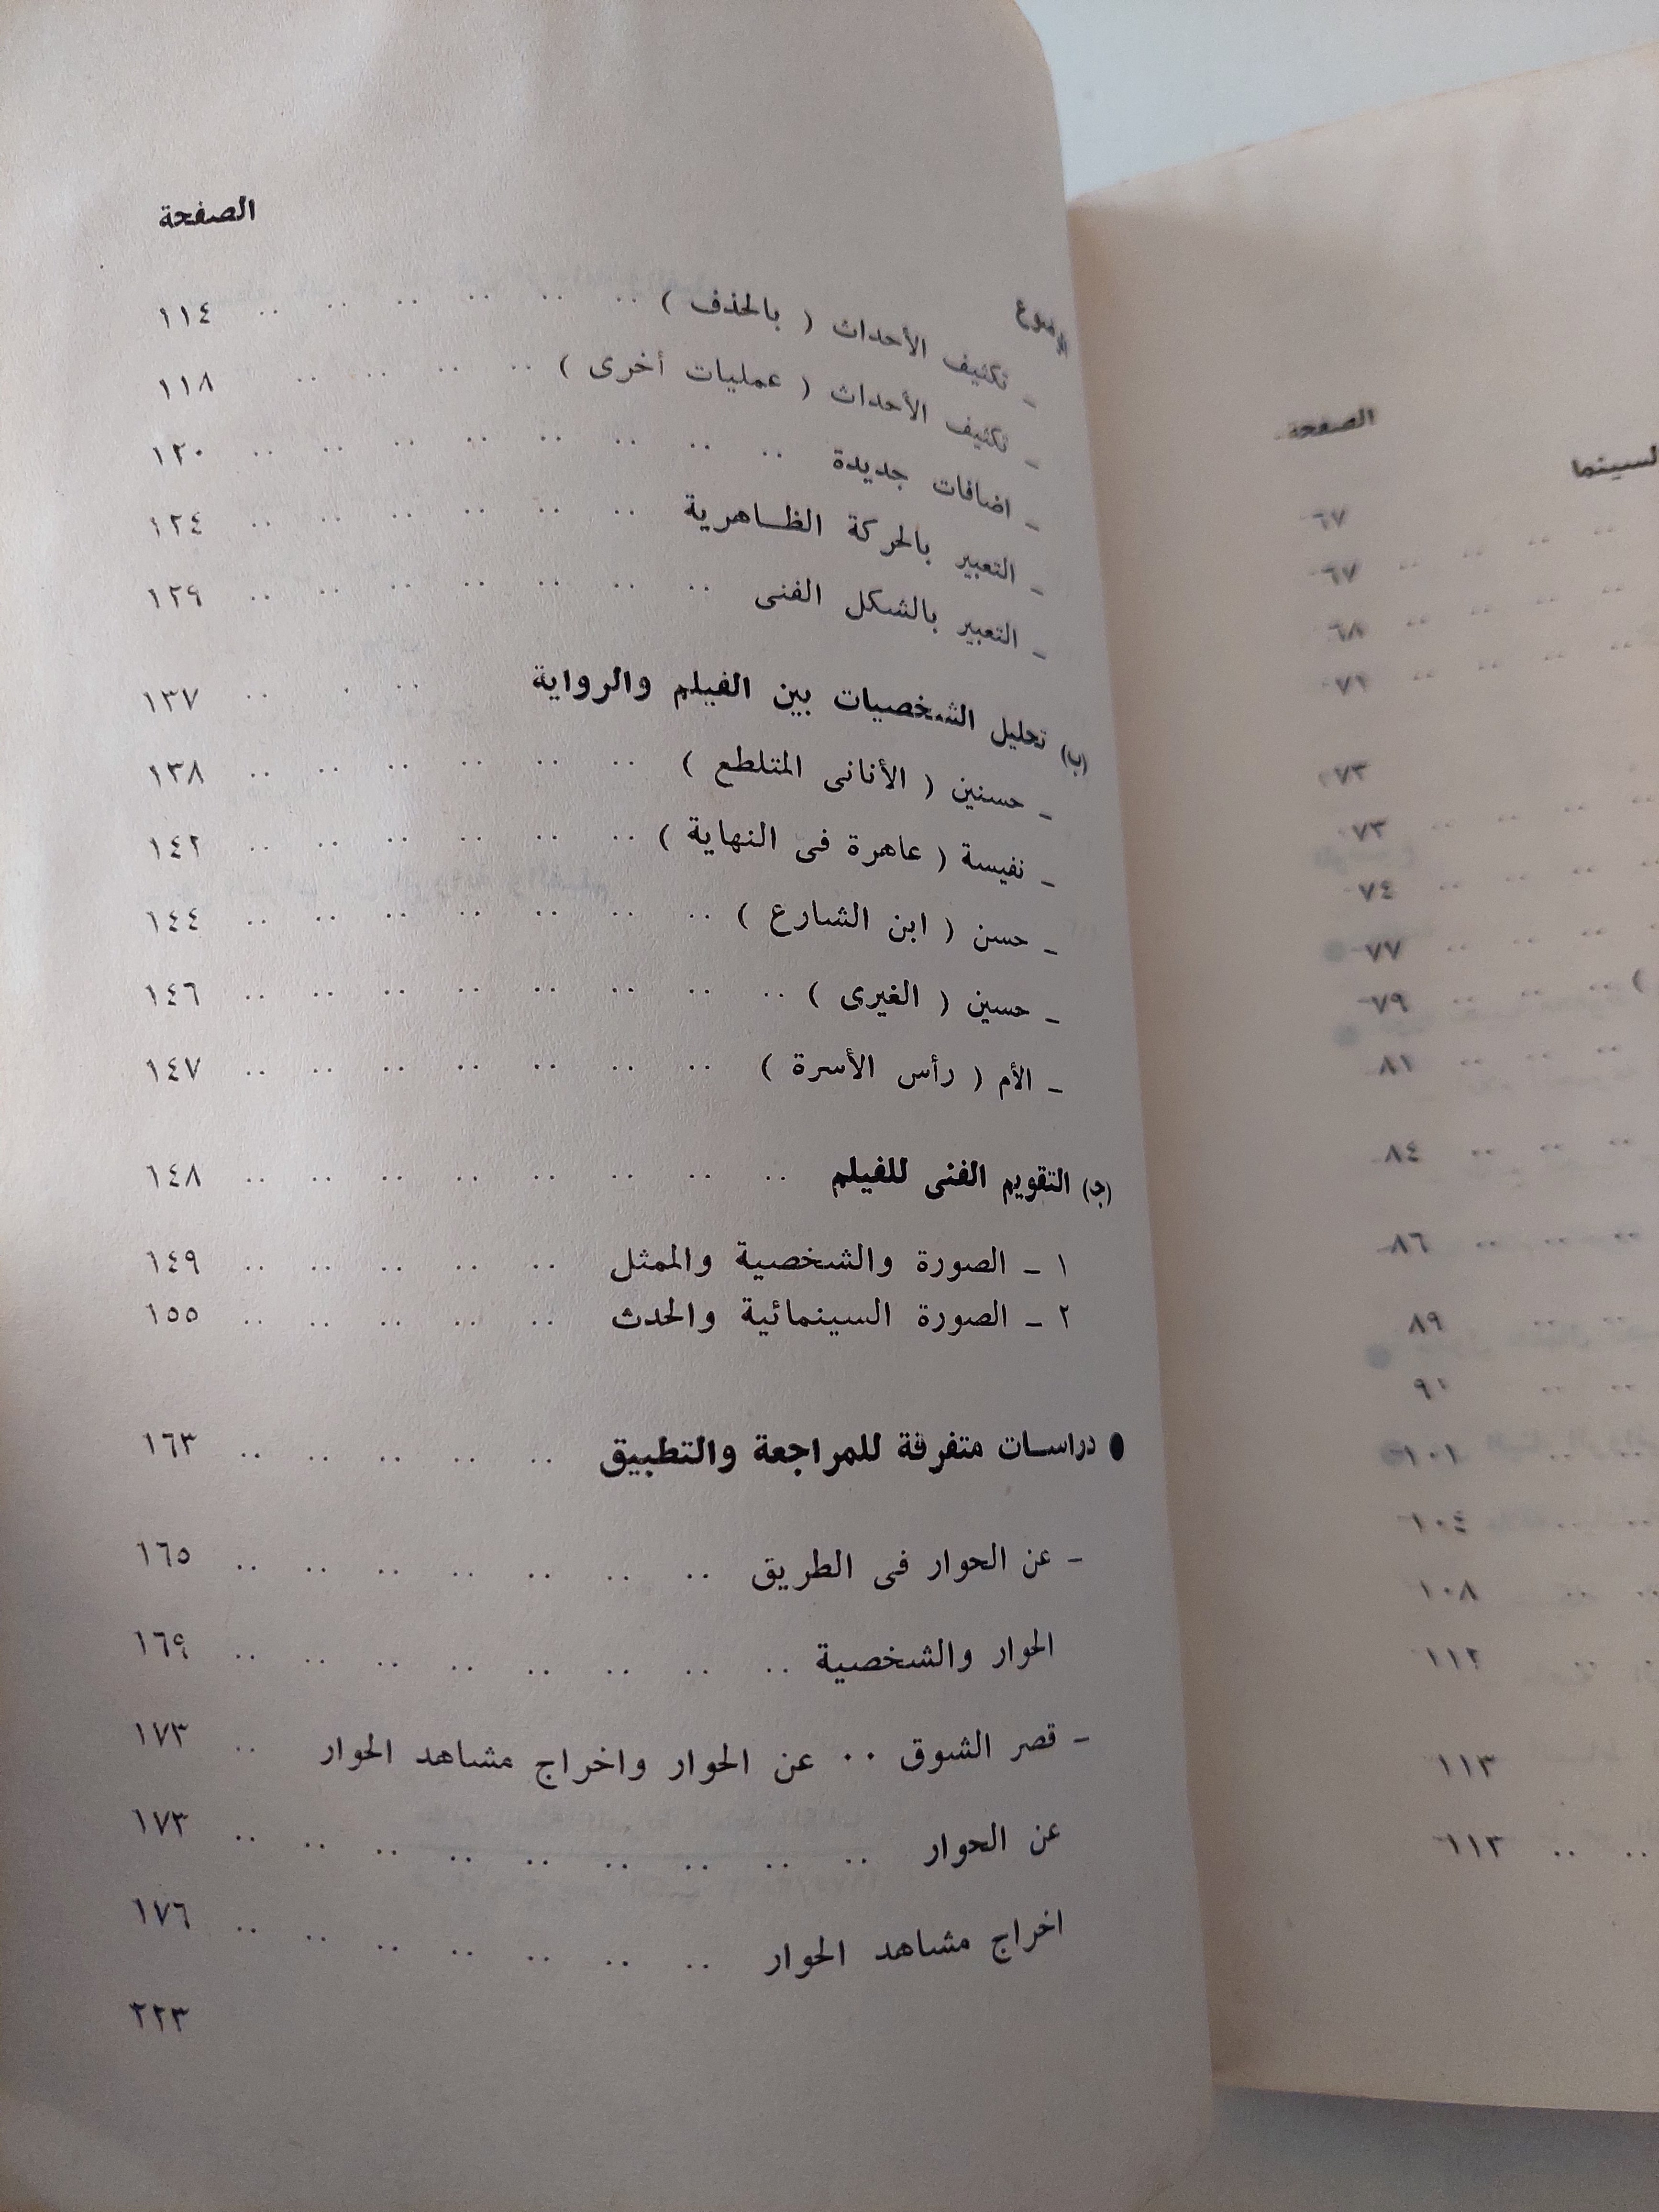 الصفحة
الموضوع
ـ تكثيف الأحداث ( بالحذف ) .. .. .. .. .. .. ١١٤
ـ تكثيف الأحداث ( عمليات أخرى ) .. .. .. .. ١١٨
ـ اضافات جديدة .. .. .. .. .. .. .. .. ١٢٠
ـ التعبير بالحركة الظاهرية .. .. .. .. .. .. ١٢٤
ـ التعبير بالشكل الفنى .. .. .. .. .. .. .. ١٢٩
(ب) تحليل الشخصيات بين الفيلم والرواية .. . .. ١٣٧
ـ حسنين ( الأنانى المتلطع ) .. .. .. .. .. .. ١٣٨
ـ نفيسة ( عاهرة فى النهاية ) .. .. .. .. .. .. ١٤٢
ـ حسن ( ابن الشارع ) .. .. .. .. .. .. .. ١٤٤
ـ حسين ( الغيرى ) .. .. .. .. .. .. .. .. ١٤٦
ـ الأم ( رأس الأسرة ) .. .. .. .. .. .. .. ١٤٧
(ج) التقويم الفنى للفيلم .. .. .. .. .. .. .. .. ١٤٨
١ ـ الصورة والشخصية والممثل .. .. .. .. .. ١٤٩
٢ ـ الصورة السينمائية والحدث .. .. .. .. .. ١٥٥
● دراسات متفرقة للمراجعة والتطبيق .. .. .. .. .. ١٦٣
ـ عن الحوار فى الطريق .. .. .. .. .. .. .. ١٦٥
الحوار والشخصية .. .. .. .. .. .. .. .. ١٦٩
ـ قصر الشوق .. عن الحوار واخراج مشاهد الحوار .. ١٧٣
عن الحوار .. .. .. .. .. .. .. .. .. ١٧٣
اخراج مشاهد الحوار .. .. .. .. .. .. .. ١٧٦
٢٢٣
الصفحة
لسينما
٦٧
٦٧
٦٨
٧٢
٧٣
٧٣
٧٤
٧٧
٧٩
٨١
٨٤
٨٦
٨٩
٩١
١٠١
١٠٤
١٠٨
١١٢
١١٣
١١٣